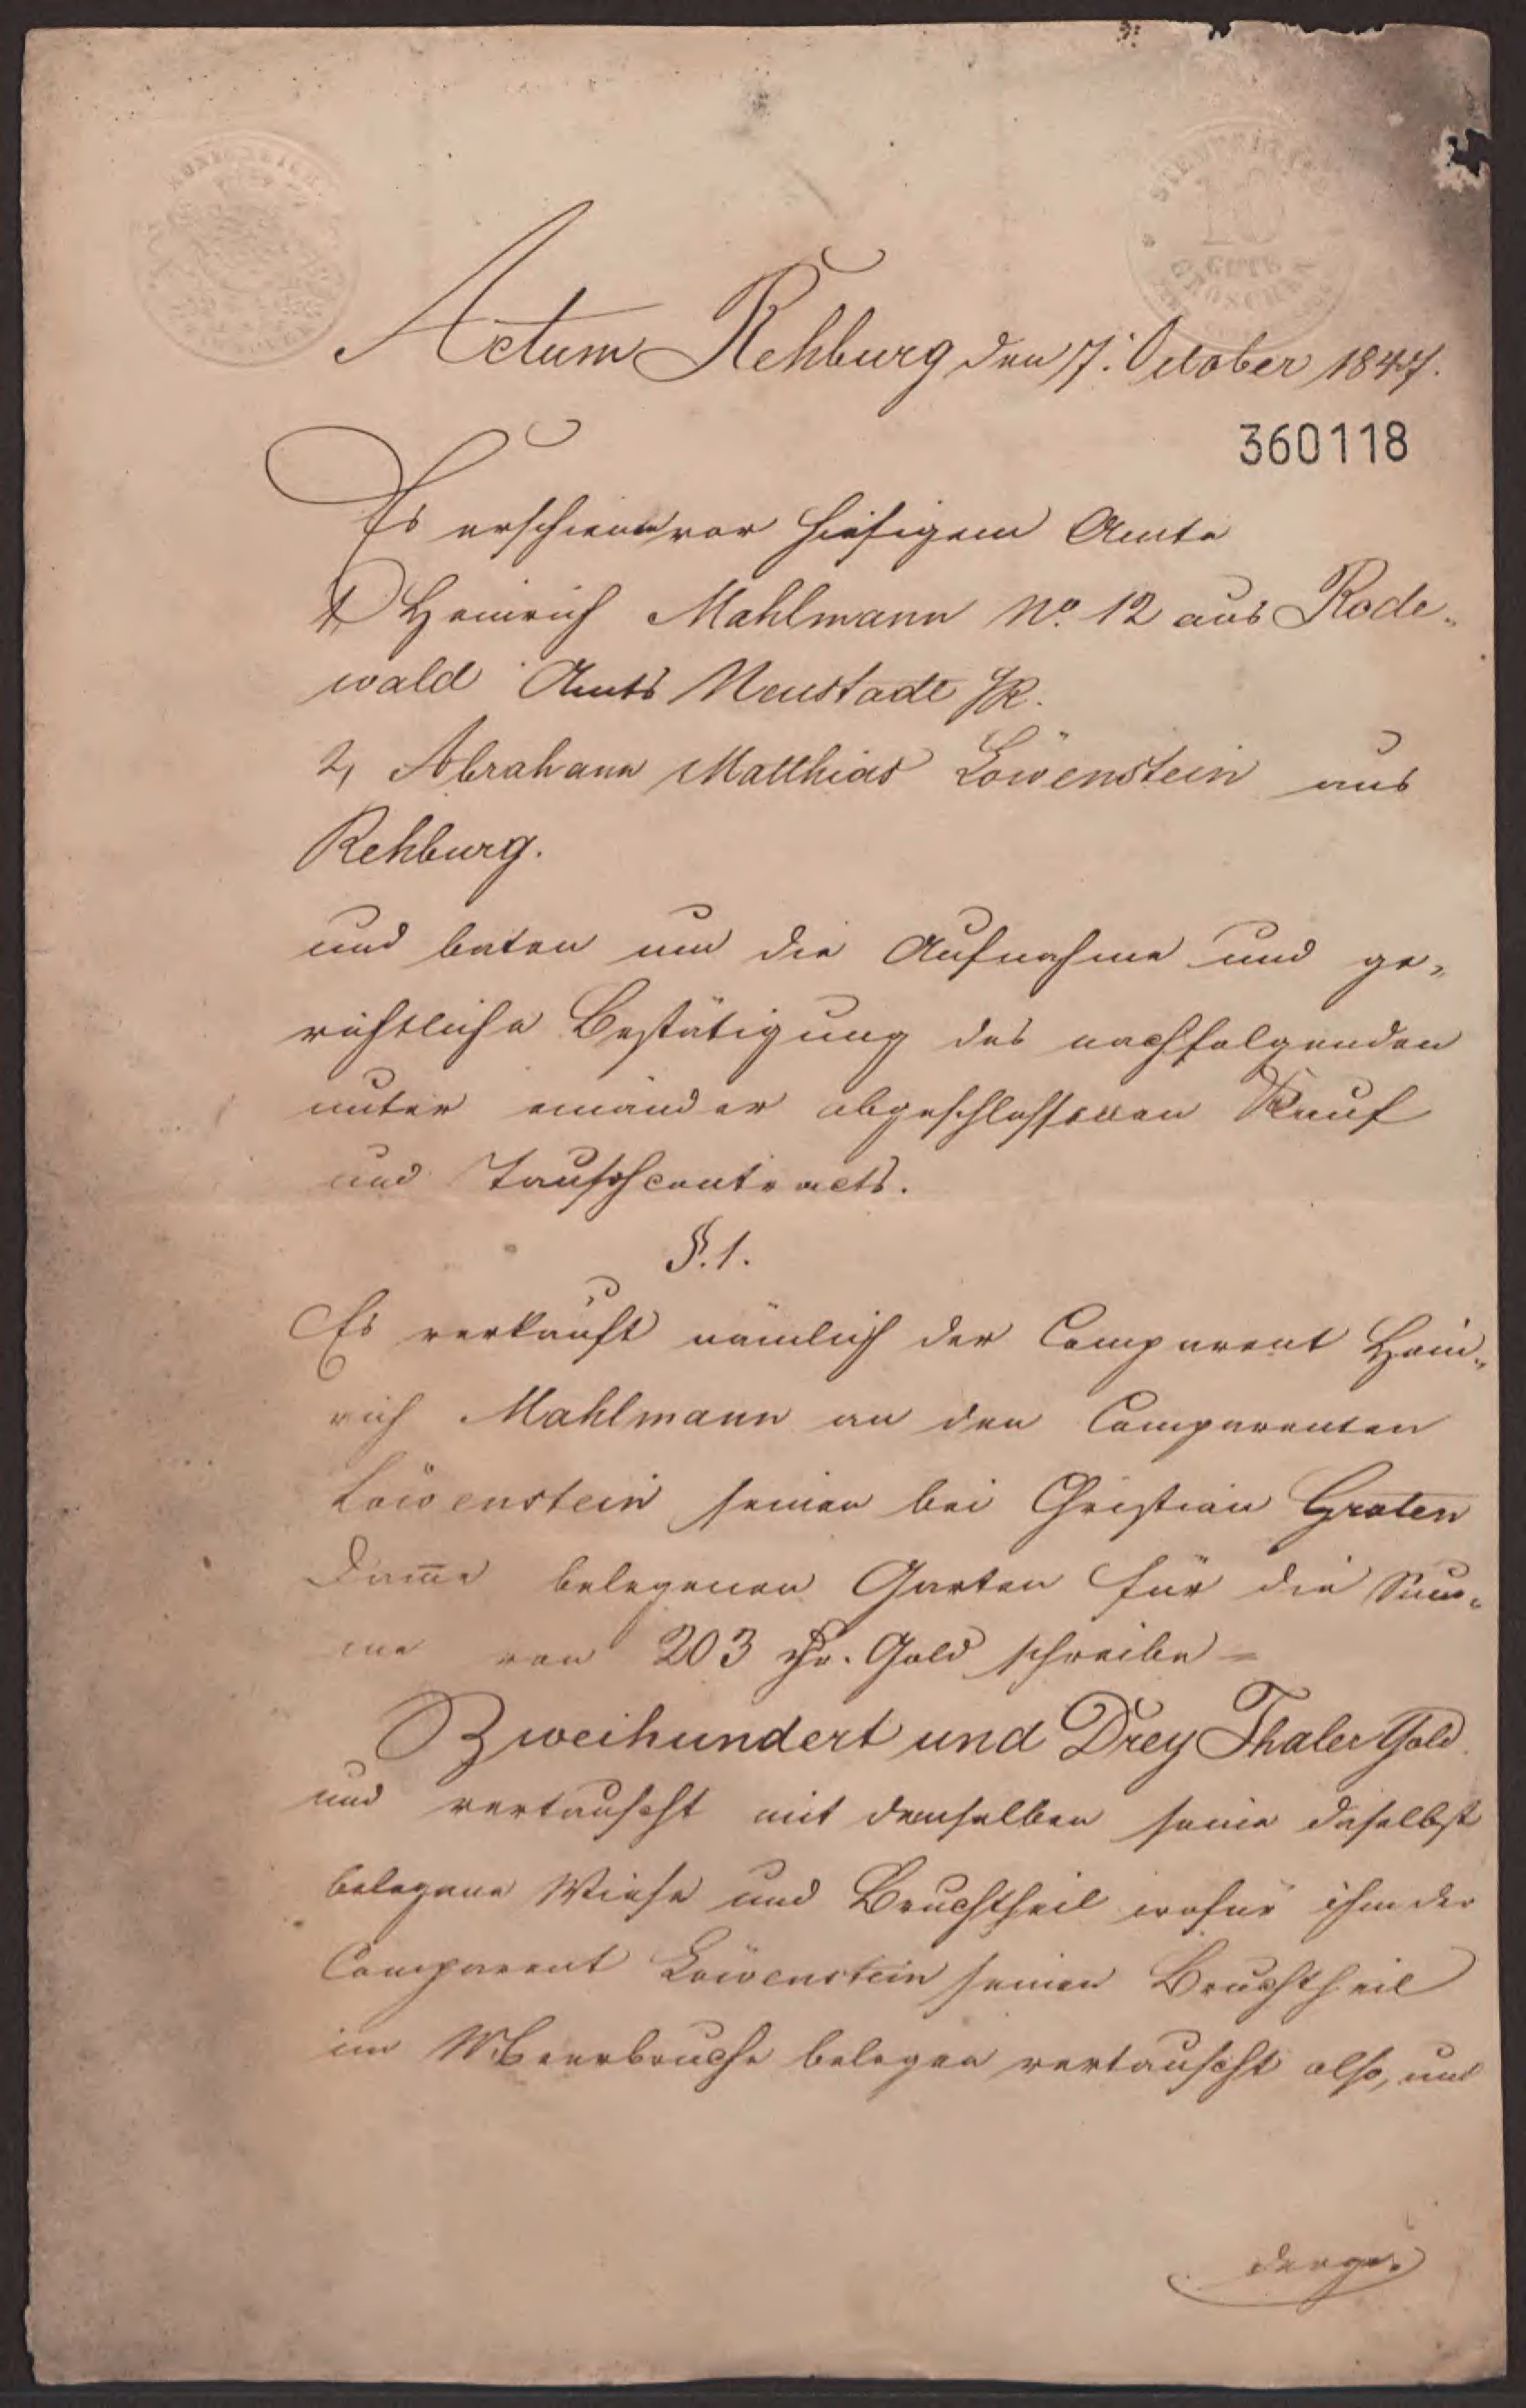 KÖNIGREICH
STEMPEL
16
GUTE
GROSCHEN
Actum Rehburg den 7. October 1847.
360118
Es erschienen vor hiesigem Amte
1, Heinrich Mahlmann No. 12 aus Rode-
wald Amts Neustadt a/R.
2, Abraham Matthias Löwenstein aus
Rehburg.
und baten um die Aufnahme und ge-
richtliche Bestätigung des nachfolgenden
unter einander abgeschlossenen Kauf
und Tauschcontracts.
§. 1.
Es verkauft nämlich der Comparent Hein-
rich Mahlmann an den Comparenten
Löwenstein seinen bei Christian Graten
Dam̅e belegenen Garten für die Sum-
me von 203 Thr. Gold schreibe =
Zweihundert und Drey Thaler Gold
und vertauscht mit demselben seine daselbst
belegene Wiese und Bruchtheil wofür ihm der
Comparent Löwenstein seinen Bruchtheil
im Meerbruche belegen vertauscht also, und
derge-